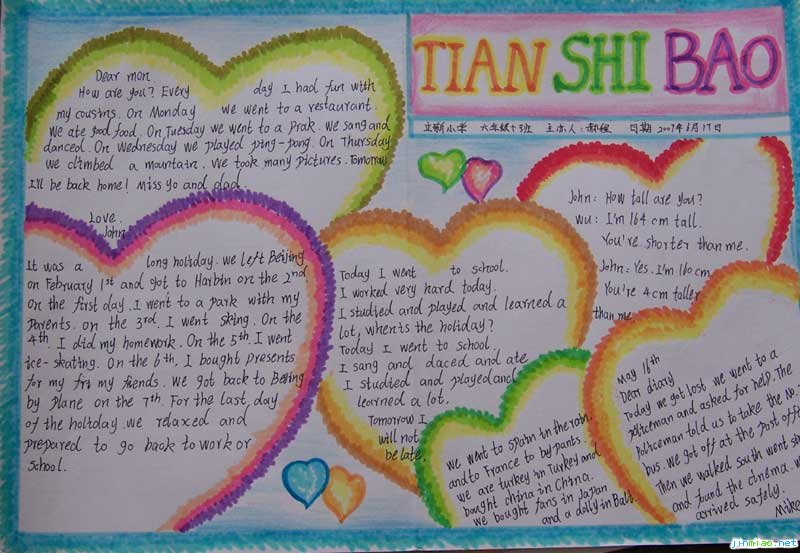 TIAN SHI BAO
立新小学 六年级十3班 主办人:郝程 日期 2009年6月17日
Dear mon
How are you? Every day I had fun with
my cousins. On Monday we went to a restaurant.
We ate good food. On Tuesday we went to a prak. We sang and
danced. On Wednesday we played ping-pong. On Thursday
we climbed a mountain. We took many pictures. Tomorrow
I'll be back home! Miss yo and dad.
Love.
John
It was a long holiday. We left Beijing
on February 1st and got to Harbin on the 2nd
On the first day. I went to a park with my
parents. On the 3rd, I went sking. On the
4th I did my homework. On the 5th, I went
ice-skating. On the 6th, I bought presents
for my fri my fiends. We got back to Beijing
by plane on the 7th. For the last, day
of the holiday. we relaxed and
prepared to go back to work or
school.
Today I went to school.
I worked very hard today.
I studied and played and learned a
lot, when is the holiday?
Today I went to school.
I sang and daced and ate
I studied and played and
learned a lot.
Tomorrow I
will not
be late.
John: How tall are you?
Wu: I'm 164 cm tall.
You're shorter than me.
John: Yes. I'm 160 cm
You're 4 cm taller
than me
We went to Spain in the rain.
and to France to by pants.
We are turkey in Turkey and
bought china in China.
We bought fans in Japan
and a dolly in Bali.
May 16th
Dear diary
Today we got lost. We went to a
policeman and asked for help. The
policeman told us to take the No.
bus. We got off at the post offi
Then we walked south went st
and found the cinema. w
arrived safely.
Mike
jinmiao.net